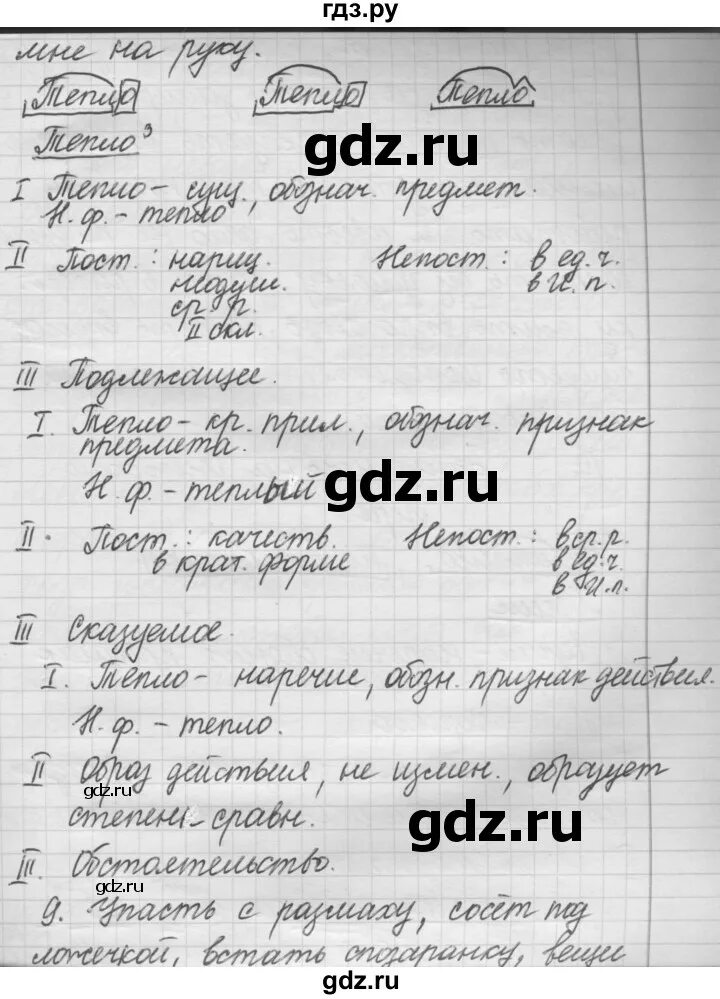 гдз.ру
мне на руку.
Тепло Тепло Тепло
Тепло³
I Тепло – сущ., обознач. предмет.
Н. ф. – тепло
II Пост.: нариц. Непост.: в ед. ч.
неодуш. в И. п.
ср. р.
II скл.
III Подлежащее.
I. Тепло – кр. прил., обознач. признак
предмета.
Н. ф. – теплый
II. Пост.: качеств. Непост.: в ср. р.
в крат. форме в ед. ч.
в И. п.
III Сказуемое.
I. Тепло – наречие, обозн. признак действия.
Н. ф. – тепло.
II Образ действия, не измен., образует
степени сравн.
III. Обстоятельство.
9. Упасть с размаху, сосёт под
ложечкой, встать спозаранку, вещи
gdz.ru
gdz.ru
gdz.ru
gdz.ru
gdz.ru
gdz.ru
gdz.ru
gdz.ru
gdz.ru
gdz.ru